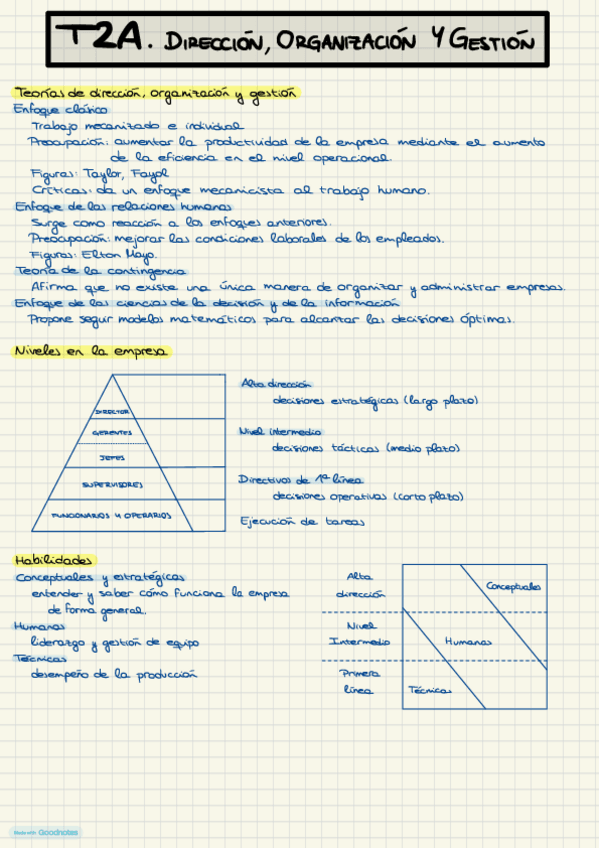 T2A. DIRECCIÓN, ORGANIZACIÓN Y GESTIÓN
Teorías de dirección, organización y gestión
Enfoque clásico
Trabajo mecanizado e individual
Preocupación: aumentar la productividad de la empresa mediante el aumento
de la eficiencia en el nivel operacional.
Figuras: Taylor, Fayol
Críticas: da un enfoque mecanicista al trabajo humano.
Enfoque de las relaciones humanas
Surge como reacción a los enfoques anteriores.
Preocupación: mejorar las condiciones laborales de los empleados.
Figuras: Elton Mayo.
Teoría de la contingencia
Afirma que no existe una única manera de organizar y administrar empresas.
Enfoque de las ciencias de la decisión y de la información
Propone seguir modelos matemáticos para alcanzar las decisiones óptimas.
Niveles en la empresa
DIRECTOR
GERENTES
JEFES
SUPERVISORES
FUNCIONARIOS Y OPERARIOS
Alta dirección
decisiones estratégicas (largo plazo)
Nivel intermedio
decisiones tácticas (medio plazo)
Directivos de 1ª línea
decisiones operativas (corto plazo)
Ejecución de tareas
Habilidades
Conceptuales y estratégicas
entender y saber cómo funciona la empresa
de forma general.
Humanas
liderazgo y gestión de equipo
Técnicas
desempeño de la producción
Alta
dirección
Nivel
Intermedio
Primera
línea
Conceptuales
Humanas
Técnicas
Made with Goodnotes